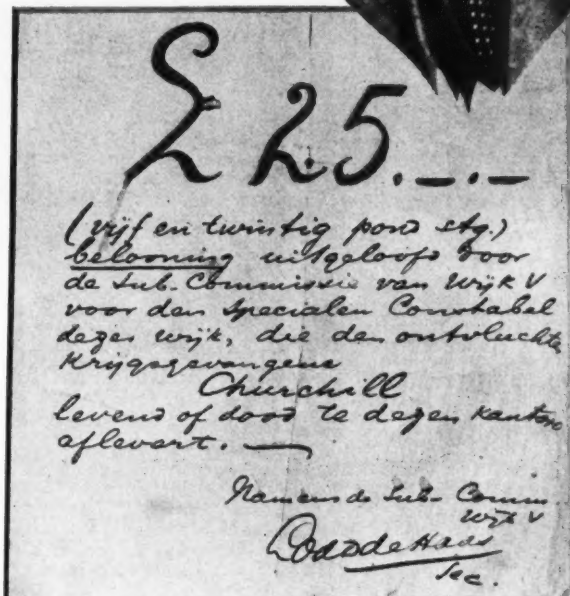 £ 25.—.—
(vijf en twintig pond stg.)
belooning uitgeloofd door
de Sub-Commissie van Wijk V
voor den specialen Constabel
dezer wijk, die den ontvluchte
Krijgsgevangene
Churchill
levend of dood te dezen kantore
aflevert. —
Namens de Sub-Comm.
Wijk V
Lodk de Haas
Sec.